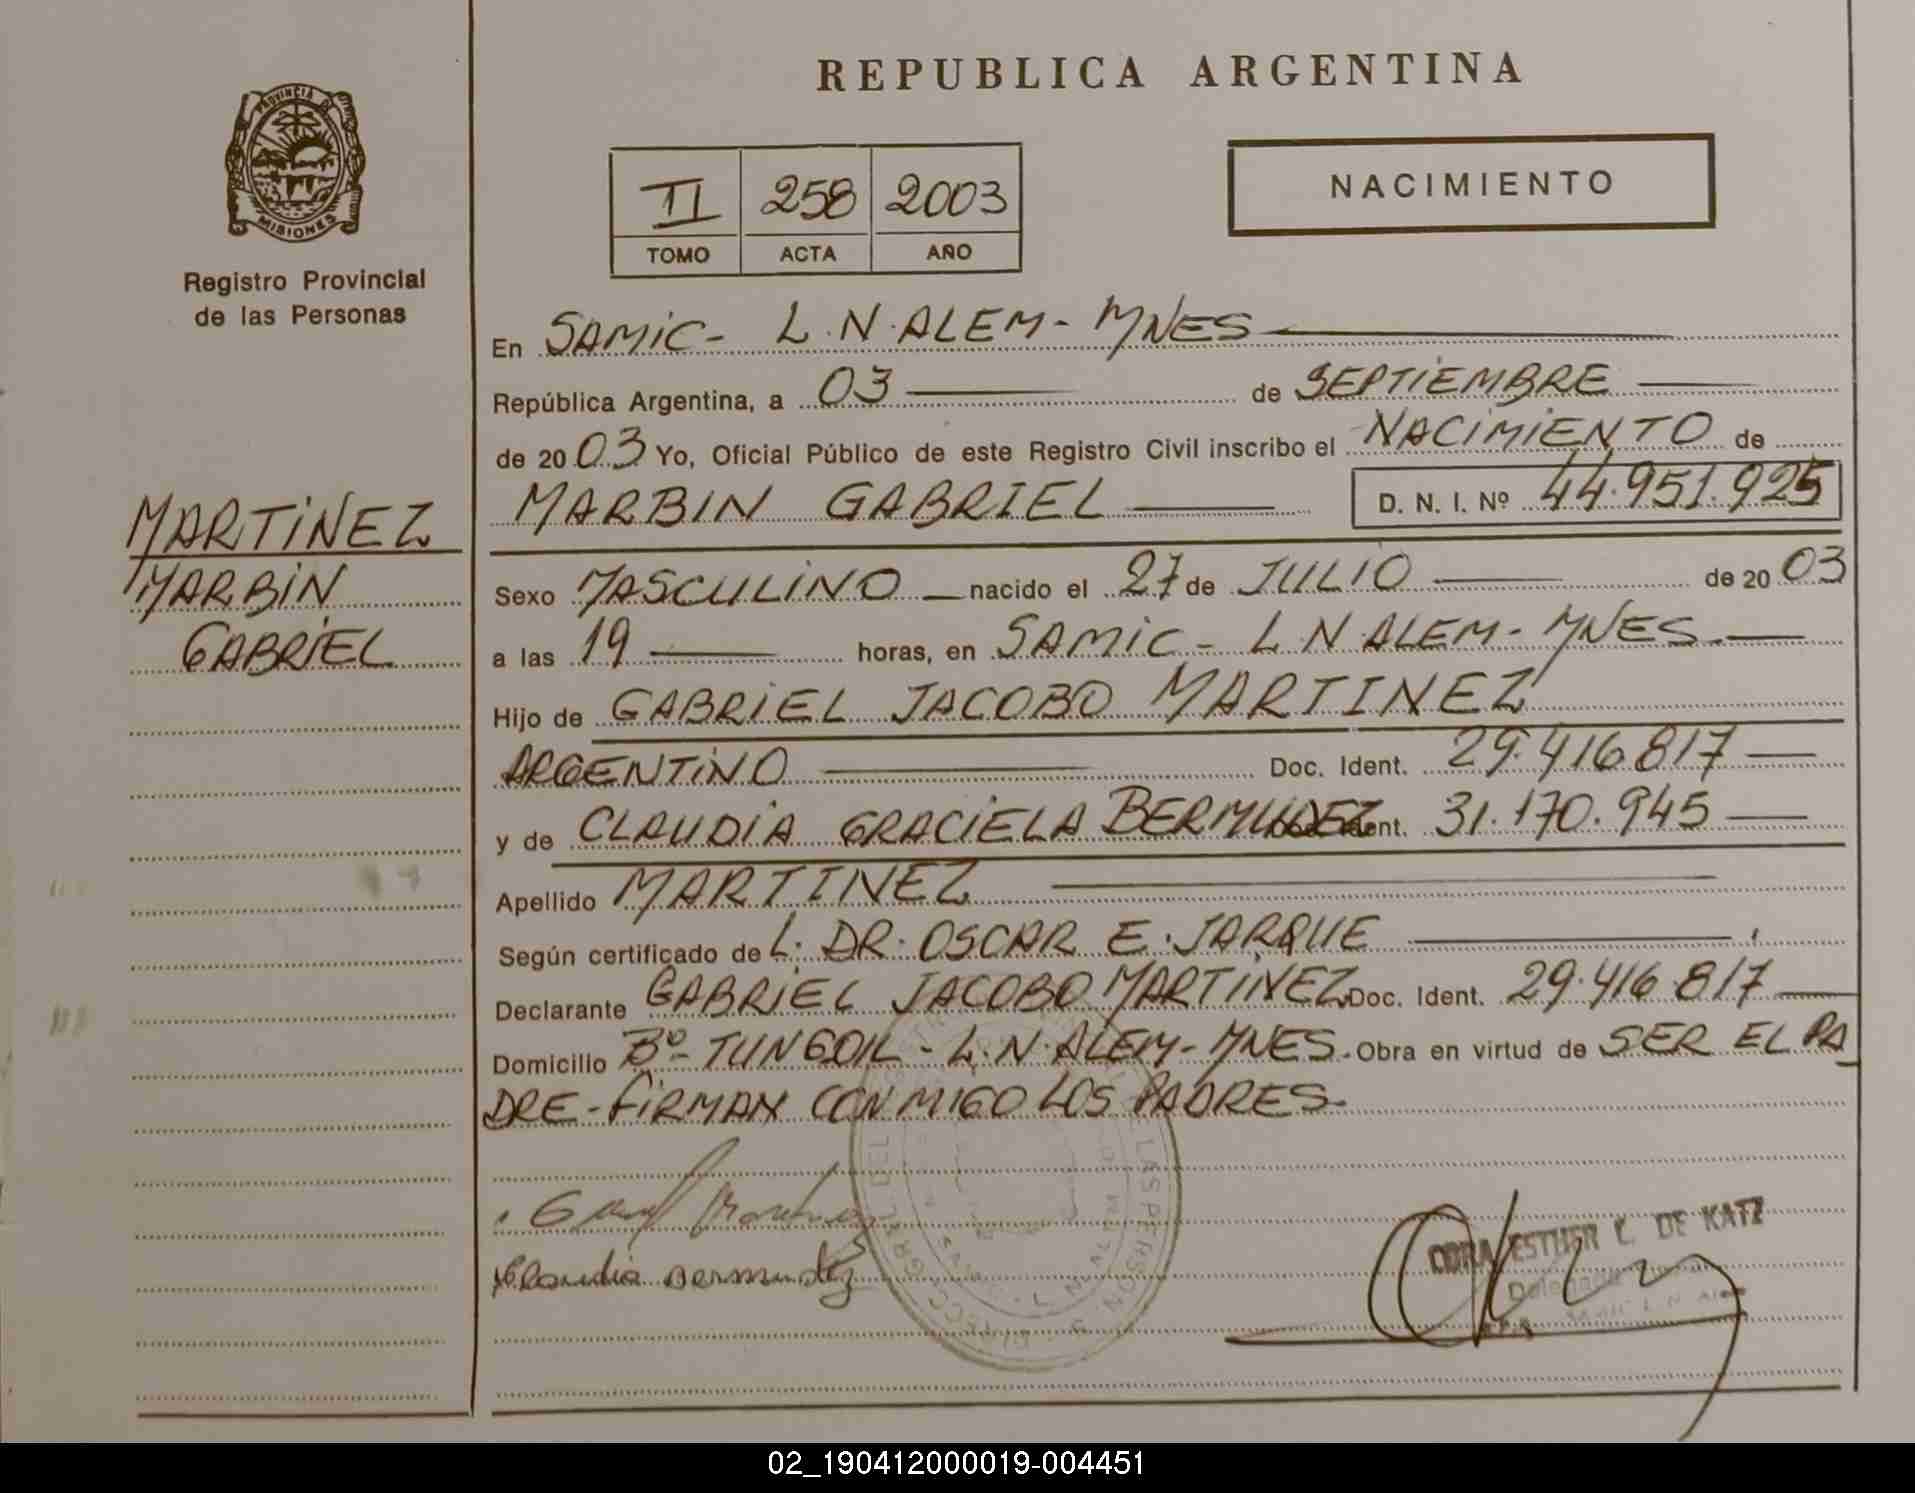 REPUBLICA ARGENTINA
PROVINCIA DE
MISIONES
Registro Provincial
de las Personas
II 258 2003
TOMO ACTA AÑO
NACIMIENTO
MARTINEZ
MARBIN
GABRIEL
En SAMIC - L.N. ALEM - MNES
República Argentina, a 03 de SEPTIEMBRE
de 2003 Yo, Oficial Público de este Registro Civil inscribo el NACIMIENTO de
MARBIN GABRIEL D. N. I. Nº 44.951.925
Sexo MASCULINO nacido el 27 de JULIO de 2003
a las 19 horas, en SAMIC - L.N ALEM - MNES
Hijo de GABRIEL JACOBO MARTINEZ
ARGENTINO Doc. Ident. 29.416.817
y de CLAUDIA GRACIELA BERMUDEZ Doc. Ident. 31.170.945
Apellido MARTINEZ
Según certificado de L. DR. OSCAR E. JARQUE
Declarante GABRIEL JACOBO MARTINEZ Doc. Ident. 29.416.817
Domicilio Bº TUNGOIL - L.N. ALEM - MNES. Obra en virtud de SER EL PA
DRE - FIRMAN CONMIGO LOS PADRES.
Claudia Bermudez
ESTHER L. DE KATZ
02_190412000019-004451